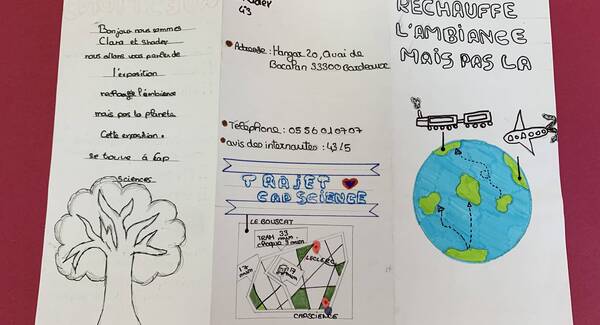 Bonjour nous sommes
Clara et shader
nous allons vous parler de
l'exposition
réchauffe l'ambiance
mais pas la planète
Cette exposition
se trouve à Cap
sciences
43
Adresse : Hangar 20, Quai de
Bacalan 33300 Bordeaux
Téléphone : 05 56 01 07 07
avis des internautes : 4.3/5
TRAJET
CAP SCIENCE
LE BOUSCAT
TRAM 33
min
chaque 9 min
17
min
17
LECLERC
CAPSCIENCE
RECHAUFFE
L'AMBIANCE
MAIS PAS LA